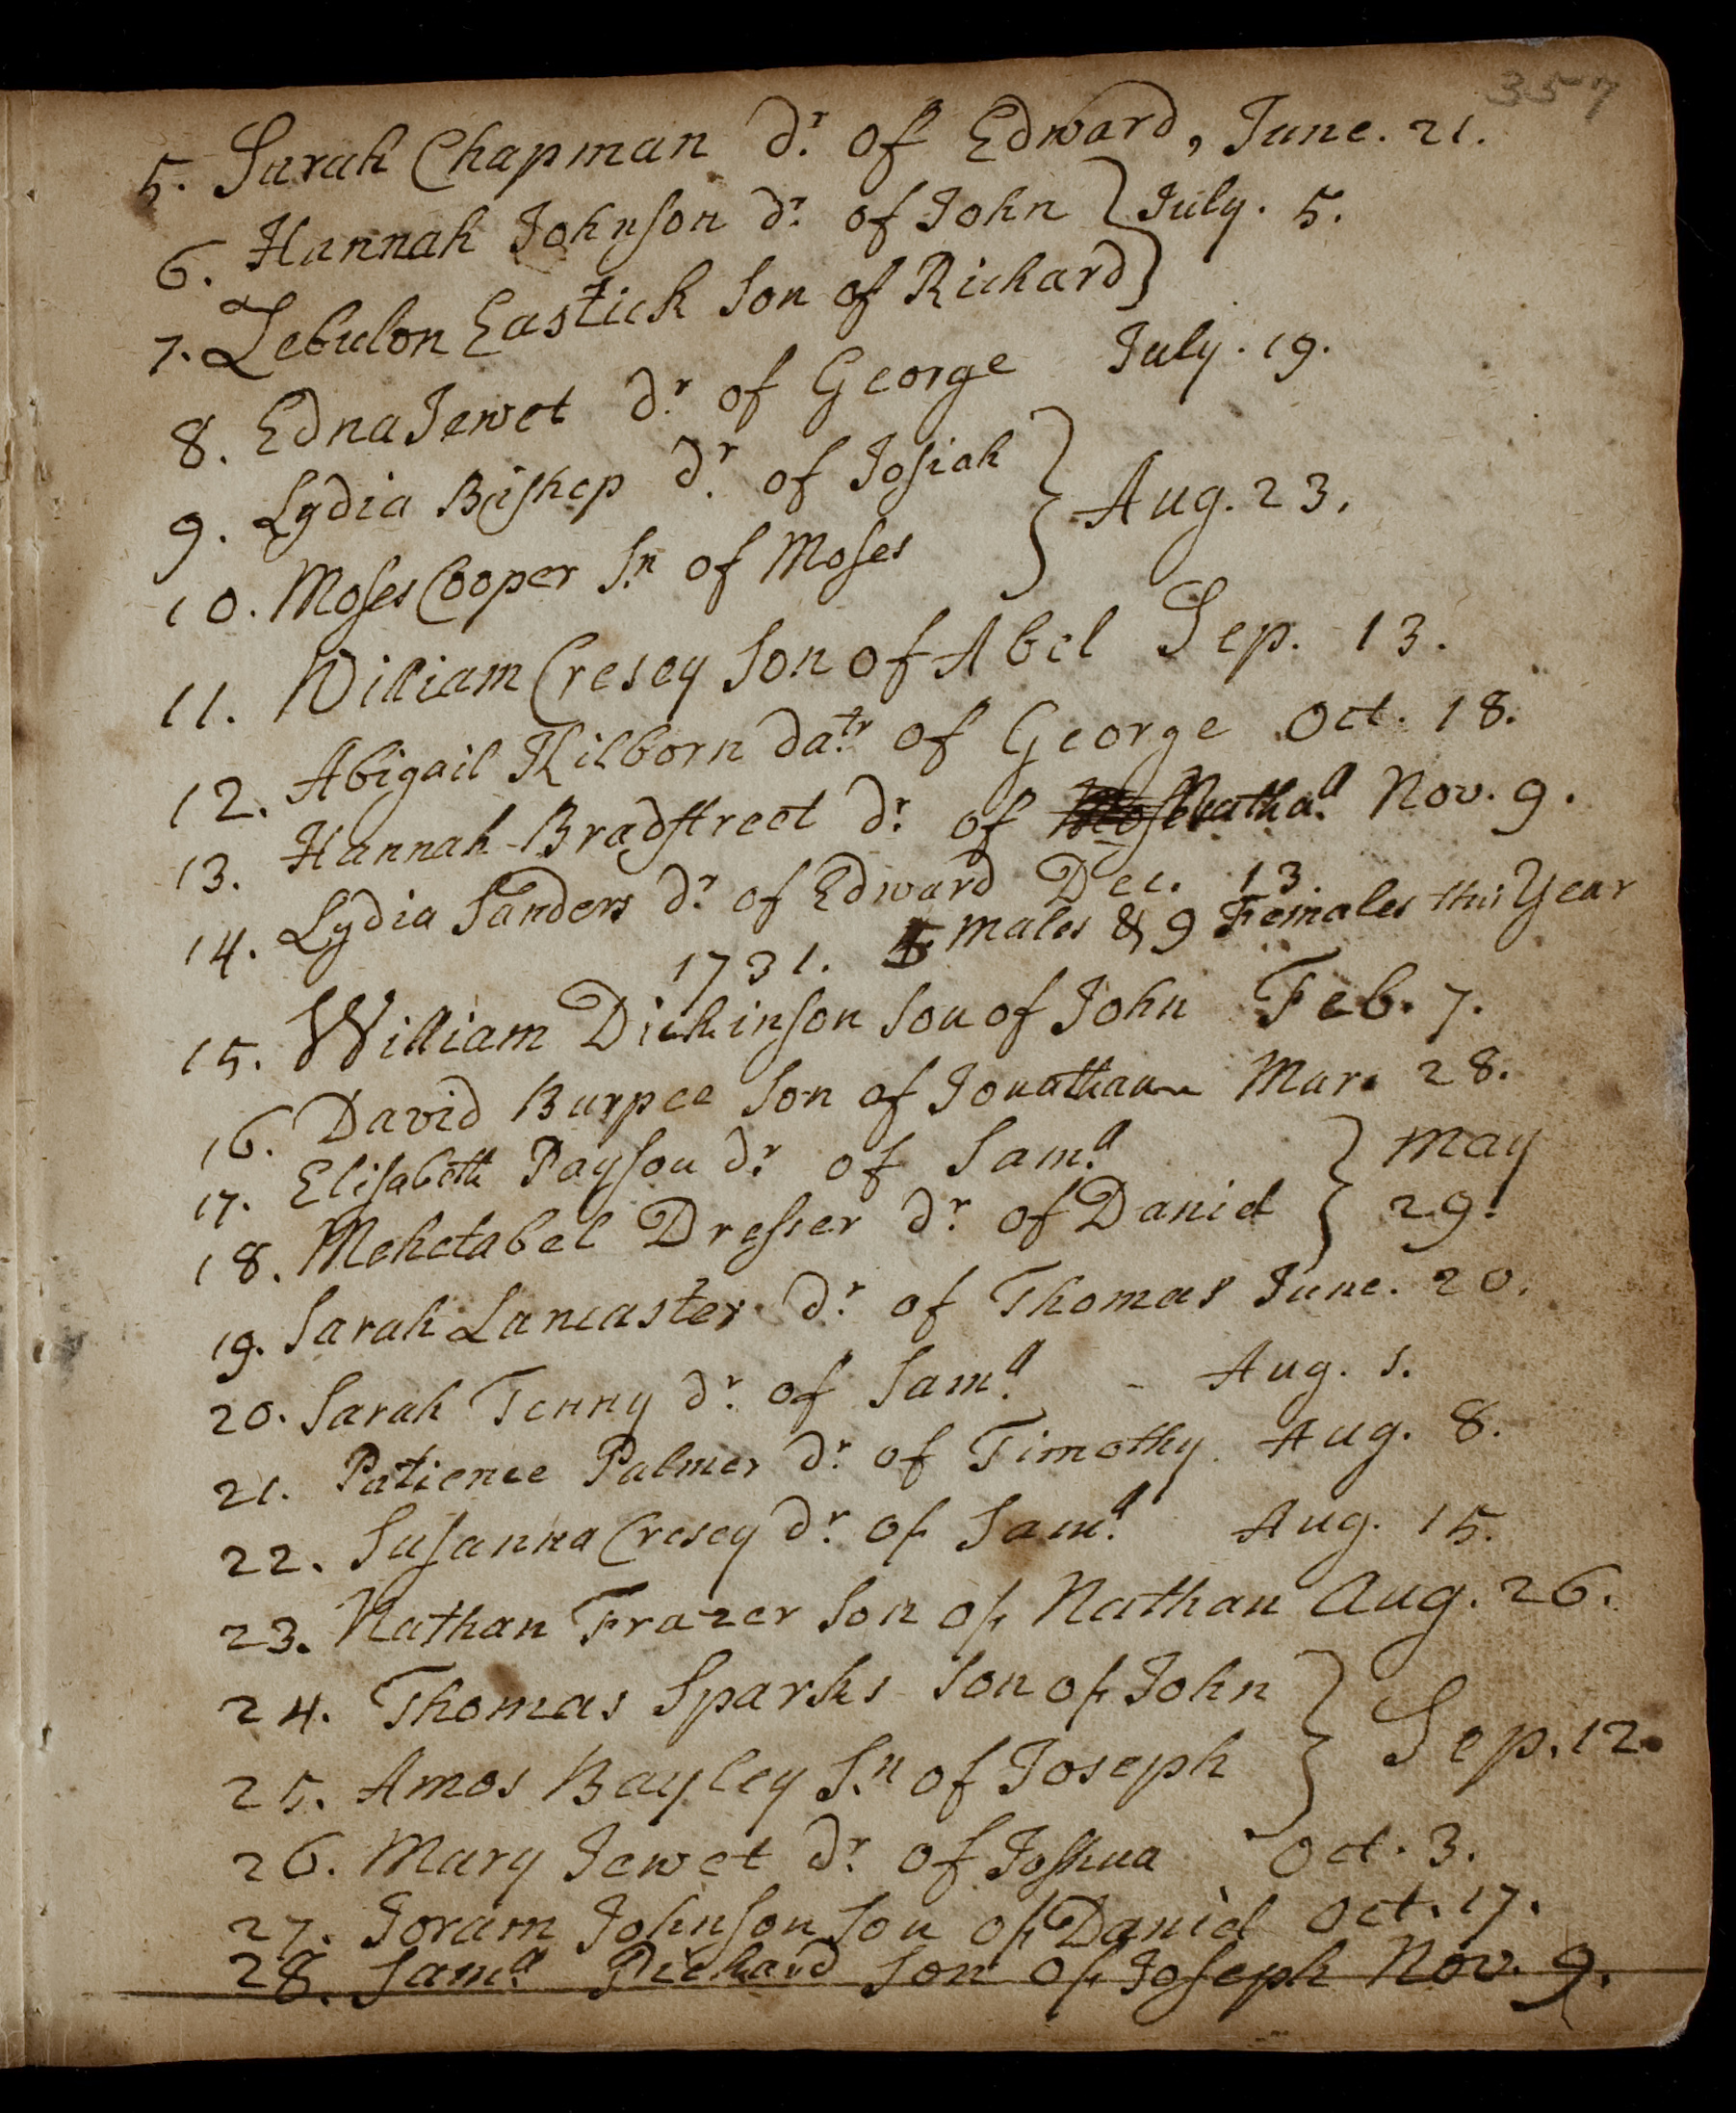 357
5. Sarah Chapman dr. of Edward, June. 21.
6. Hannah Johnson dr. of John } July. 5.
7. Zebulon Eastick son of Richard }
8. Edna Jewet dr. of George July. 19.
9. Lydia Bishop dr. of Josiah } Aug. 23.
10. Moses Cooper Sn. of Moses
11. William Cresey son of Abel Sep. 13.
12. Abigail Kilborn datr. of George Oct. 18.
13. Hannah Bradstreet dr. of Nathal. Nov. 9.
14. Lydia Sanders dr. of Edward Dec. 13.
1731. 5 males & 9 Females this Year
15. William Dickinson son of John Feb. 7.
16. David Burpee son of Jonathan Mar. 28.
17. Elisabeth Payson dr. of Saml. } May
18. Mehetabel Dresser dr. of Daniel 29.
19. Sarah Lancaster dr. of Thomas June. 20.
20. Sarah Tenny dr. of Saml. - Aug. 1.
21. Patience Palmer dr. of Timothy. Aug. 8.
22. Susanna Cresey dr. of Saml. Aug. 15.
23. Nathan Frazer son of Nathan Aug. 26.
24. Thomas Sparks son of John } Sep. 12.
25. Amos Bayley Sn. of Joseph
26. Mary Jewet dr. of Joshua Oct. 3.
27. Joram Johnson son of Daniel Oct. 17.
28. Saml. Pickard son of Joseph Nov. 9.